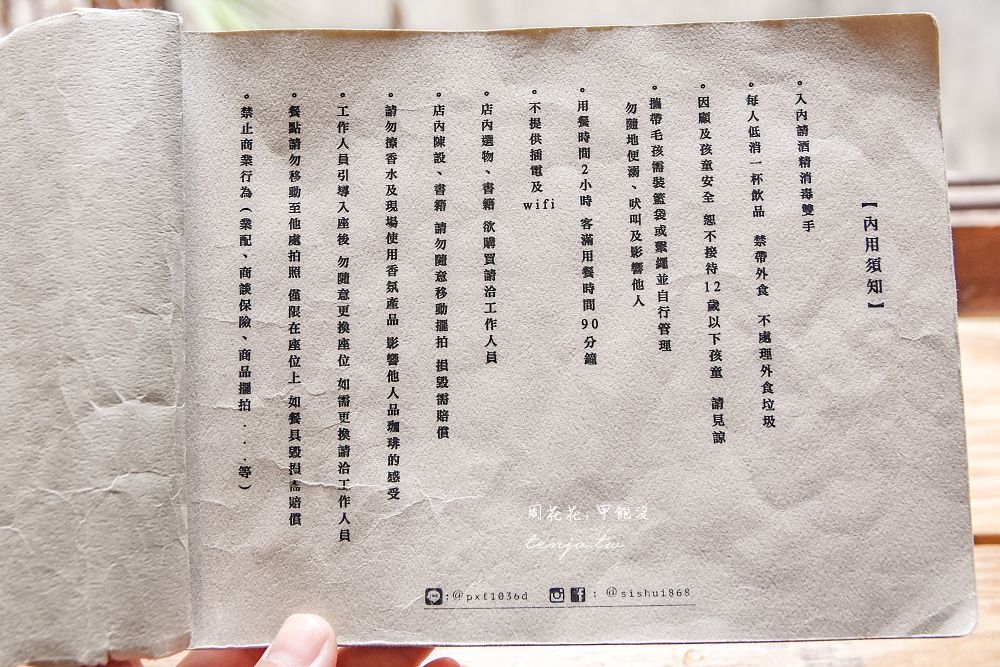 【內用須知】
。入內請酒精消毒雙手
。每人低消一杯飲品 禁帶外食 不處理外食垃圾
。因顧及孩童安全 恕不接待12歲以下孩童 請見諒
。攜帶毛孩需裝籃袋或繫繩並自行管理
勿隨地便溺、吠叫及影響他人
。用餐時間2小時 客滿用餐時間90分鐘
。不提供插電及wifi
。店內選物、書籍 欲購買請洽工作人員
。店內陳設、書籍 請勿隨意移動擺拍 損毀需賠償
。請勿擦香水及現場使用香氛產品 影響他人品咖啡的感受
。工作人員引導入座後 勿隨意更換座位 如需更換請洽工作人員
。餐點請勿移動至他處拍照 僅限在座位上 如餐具毀損需賠償
。禁止商業行為(業配、商談保險、商品擺拍....等)
周花花,甲飽沒
tenjo.tw
:@pxf1036d : @sishui868